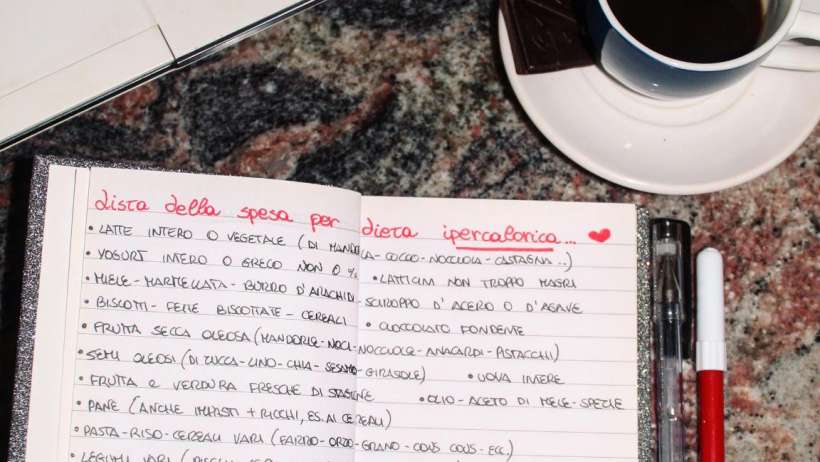 Lista della spesa per dieta ipercalorica... ♥
• LATTE INTERO O VEGETALE (DI MANDORLA-COCCO-NOCCIOLA-CASTAGNA...)
• YOGURT INTERO O GRECO NON 0% • LATTICINI NON TROPPO MAGRI
• MIELE-MARMELLATA-BURRO D'ARACHIDI-SCIROPPO D'ACERO O D'AGAVE
• BISCOTTI-FETTE BISCOTTATE-CEREALI • CIOCCOLATO FONDENTE
• FRUTTA SECCA OLEOSA (MANDORLE-NOCI-NOCCIOLE-ANACARDI-PISTACCHI)
• SEMI OLEOSI (DI ZUCCA-LINO-CHIA-SESAMO-GIRASOLE) • UOVA INTERE
• FRUTTA E VERDURA FRESCHE DI STAGIONE • OLIO-ACETO DI MELE-SPEZIE
• PANE (ANCHE IMPASTI + RICCHI, ES. AI CEREALI)
• PASTA-RISO-CEREALI VARI (FARRO-ORZO-GRANO-COUS COUS-ECC.)
• LEGUMI VARI